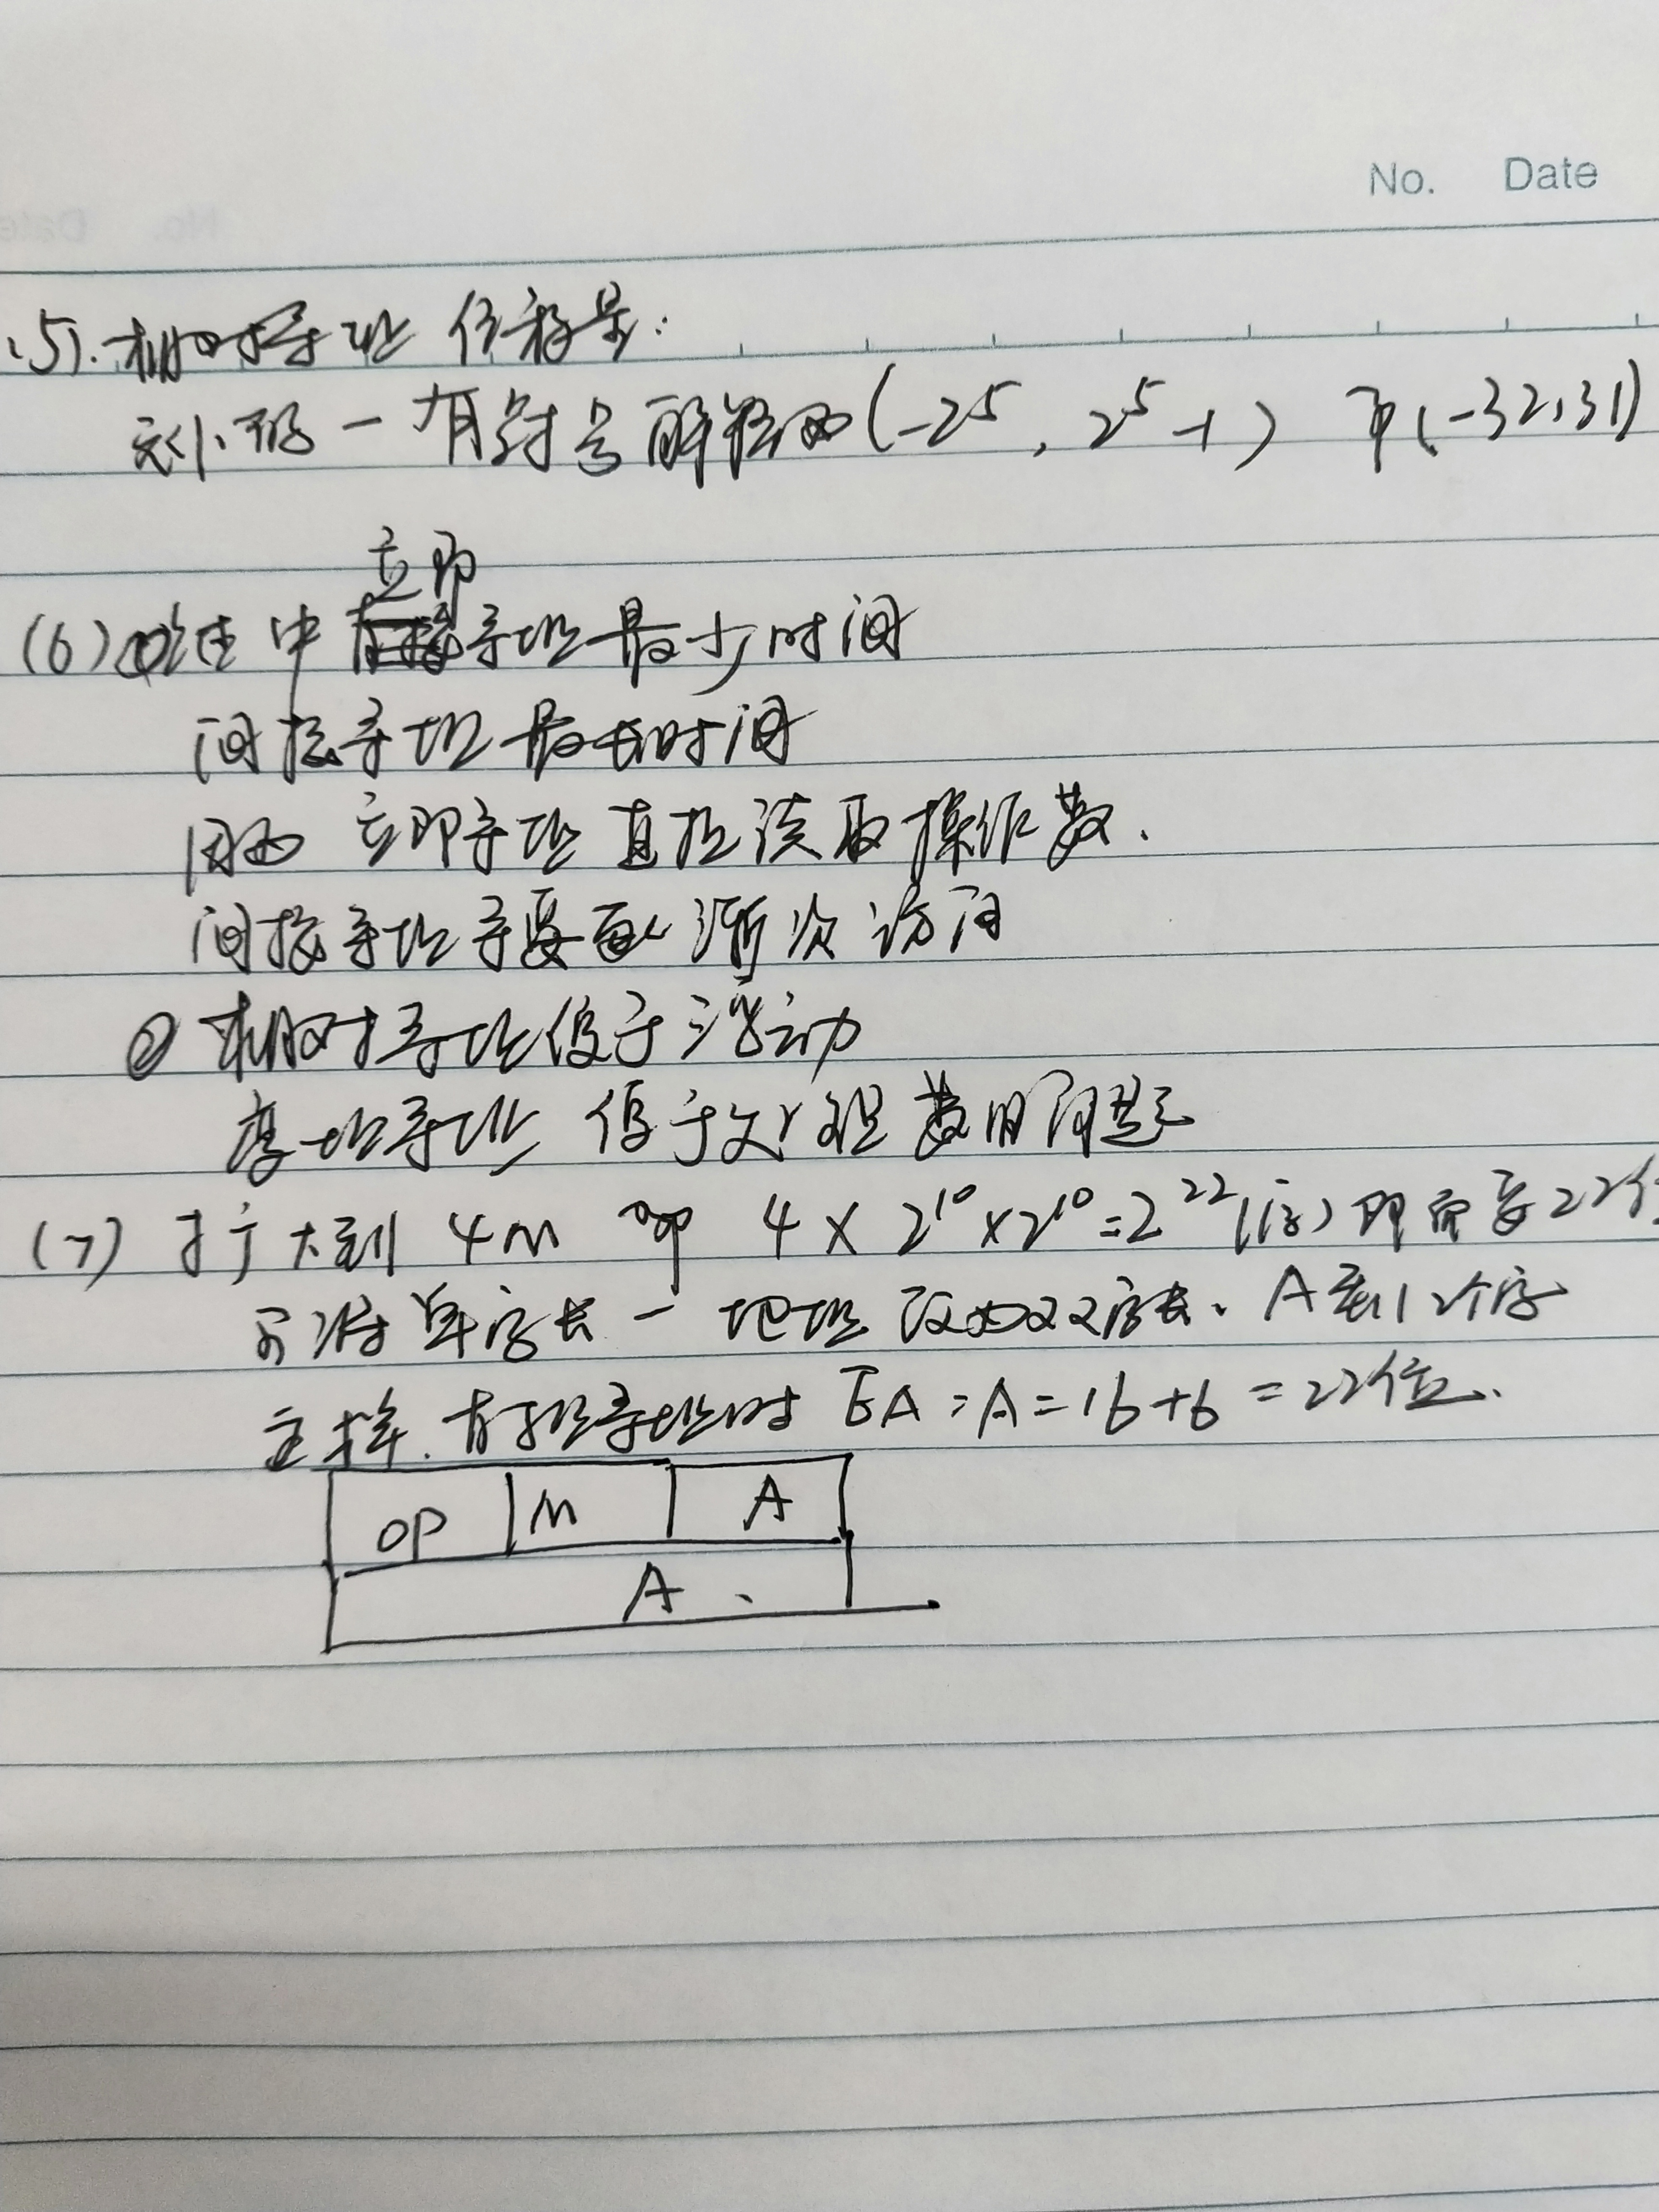 No. Date
(5). 相对寻址 位移量:
有符号 (-2^5, 2^5-1) 即(-32,31)
立即
(6)① 中 寻址最少时间
间接寻址最长时间
因为 立即寻址 直接读取操作数.
间接寻址 次访问
② 相对寻址便于浮动
寻址 便于处理数组问题
(7) 扩大到 4M 即 4×2^10×2^10=2^22(字) 即需要22位
可将单字长一地址 改为双字长.
这样. 直接寻址时 EA=A=16+6=22位.
OP M A
A